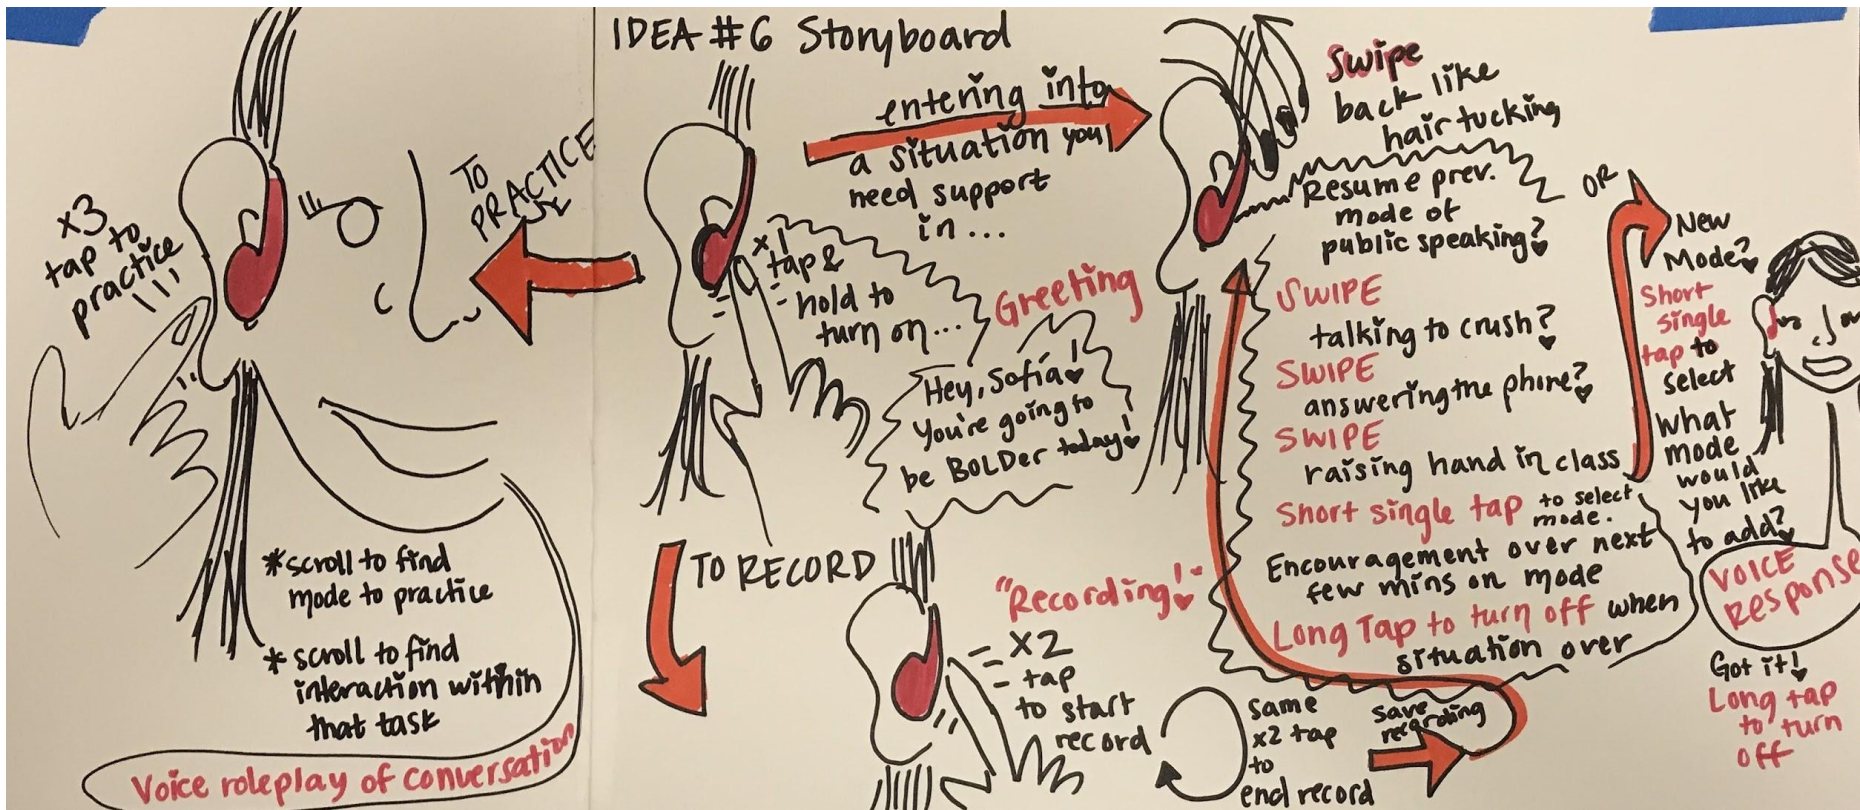 IDEA #6 Storyboard
x3
tap to
practice
!!!
TO
PRACTICE
*scroll to find
mode to practice
*scroll to find
interaction within
that task
Voice roleplay of conversation
x1
tap &
hold to
turn on...
Greeting
Hey, Sofia!
You're going to
be BOLDer today!
entering into
a situation you
need support
in...
TO RECORD
"Recording!"
x2
tap
to start
record
same
x2 tap
to
end record
save
recording
Swipe
back like
hair tucking
Resume prev.
mode of
public speaking?
SWIPE
talking to crush?
SWIPE
answering the phone?
SWIPE
raising hand in class
Short single tap to select
mode.
Encouragement over next
few mins on mode
Long Tap to turn off when
situation over
OR
New
Mode?
Short
single
tap to
select
What
mode
would
you like
to add?
VOICE
Response
Got it!
Long tap
to turn
off